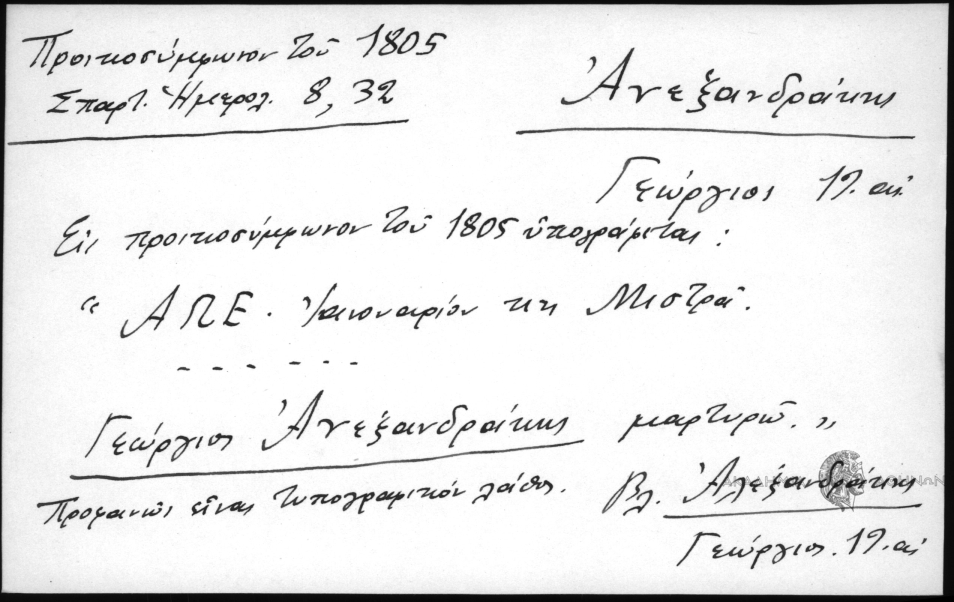 Προικοσύμφωνον τοῦ 1805
Σπαρτ. Ἡμερολ. 8, 32
Ἀνεξανδράκης
Γεώργιος 19. αἰ.
Εἰς προικοσύμφωνον τοῦ 1805 ὑπογράφεται :
“ ΑΠΕ. 1805 Ἰανουαρίου τῃ Μιστρᾶ.
- - - - - -
Γεώργιος Ἀνεξανδράκης μαρτυρῶ. „
Προφανῶς εἶναι τυπογραφικόν λάθος.
Βλ. Ἀλεξανδράκης
Γεώργιος. 19. αἰ